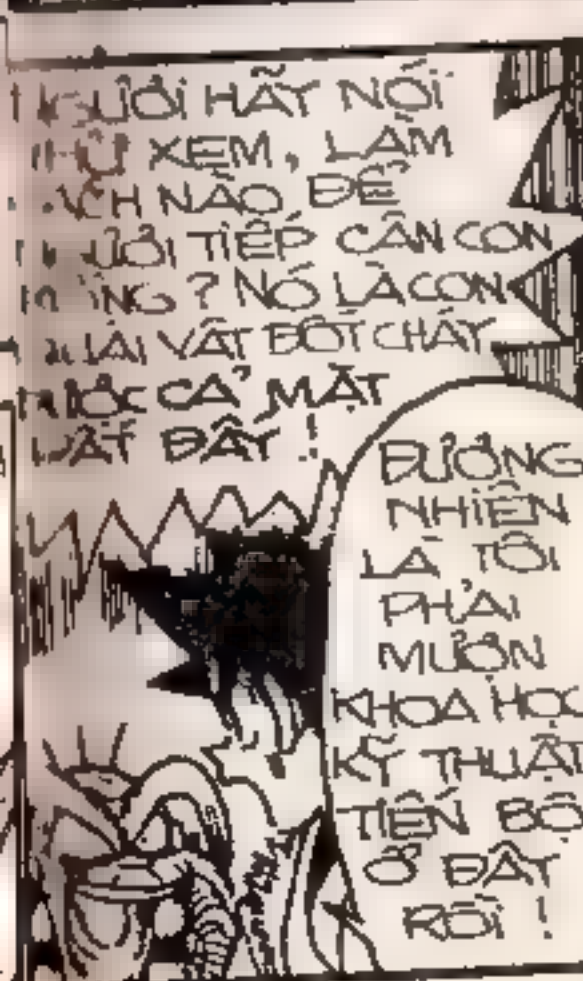 NGƯƠI HÃY NÓI
THỬ XEM, LÀM
CÁCH NÀO ĐỂ
NGƯƠI TIẾP CẬN CON
? NÓ LÀ CON
VẬT ĐỐT CHÁY
ĐƯỢC CẢ MẶT
ĐẤT ĐẤY !
ĐƯƠNG
NHIÊN
LÀ TÔI
PHẢI
MƯỢN
KHOA HỌC
KỸ THUẬT
TIẾN BỘ
Ở ĐÂY
RỒI !